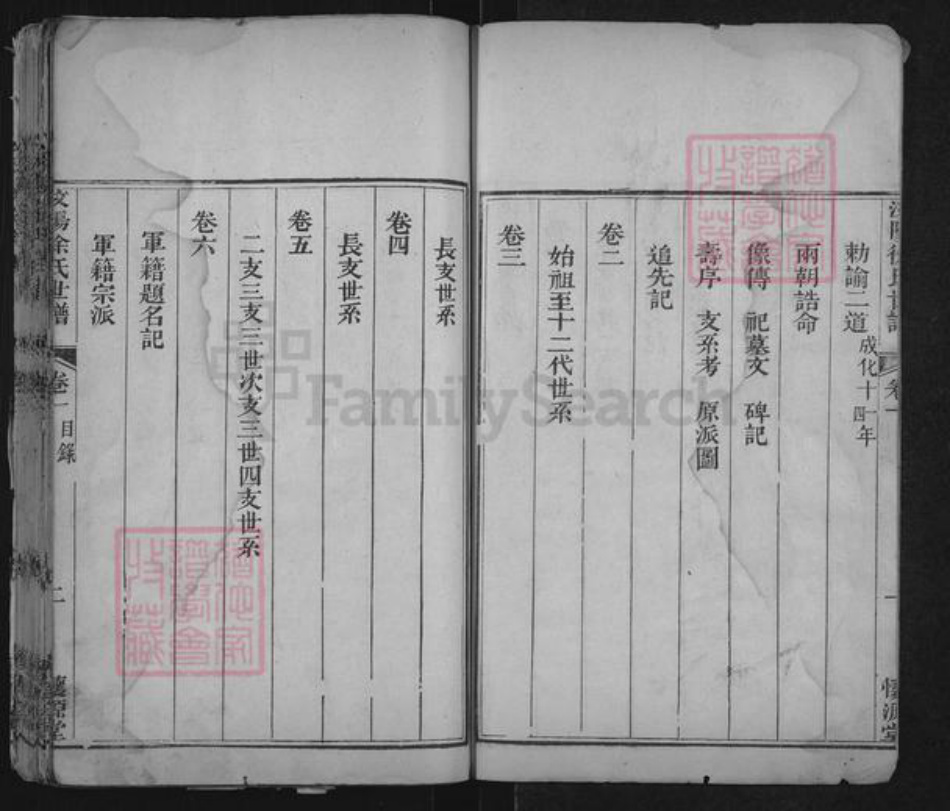 勅諭二道 成化十一年 四
兩朝誥命
像傳 祀墓文 碑記
壽序 支系考 原派圖
追先記
卷二
始祖至十二代世系
卷三
長支世系
卷四
長支世系
卷五
二支三支三世次支三世四支世系
卷六
軍籍題名記
軍籍宗派
氏世譜 卷一 目錄 二
FamilySearch